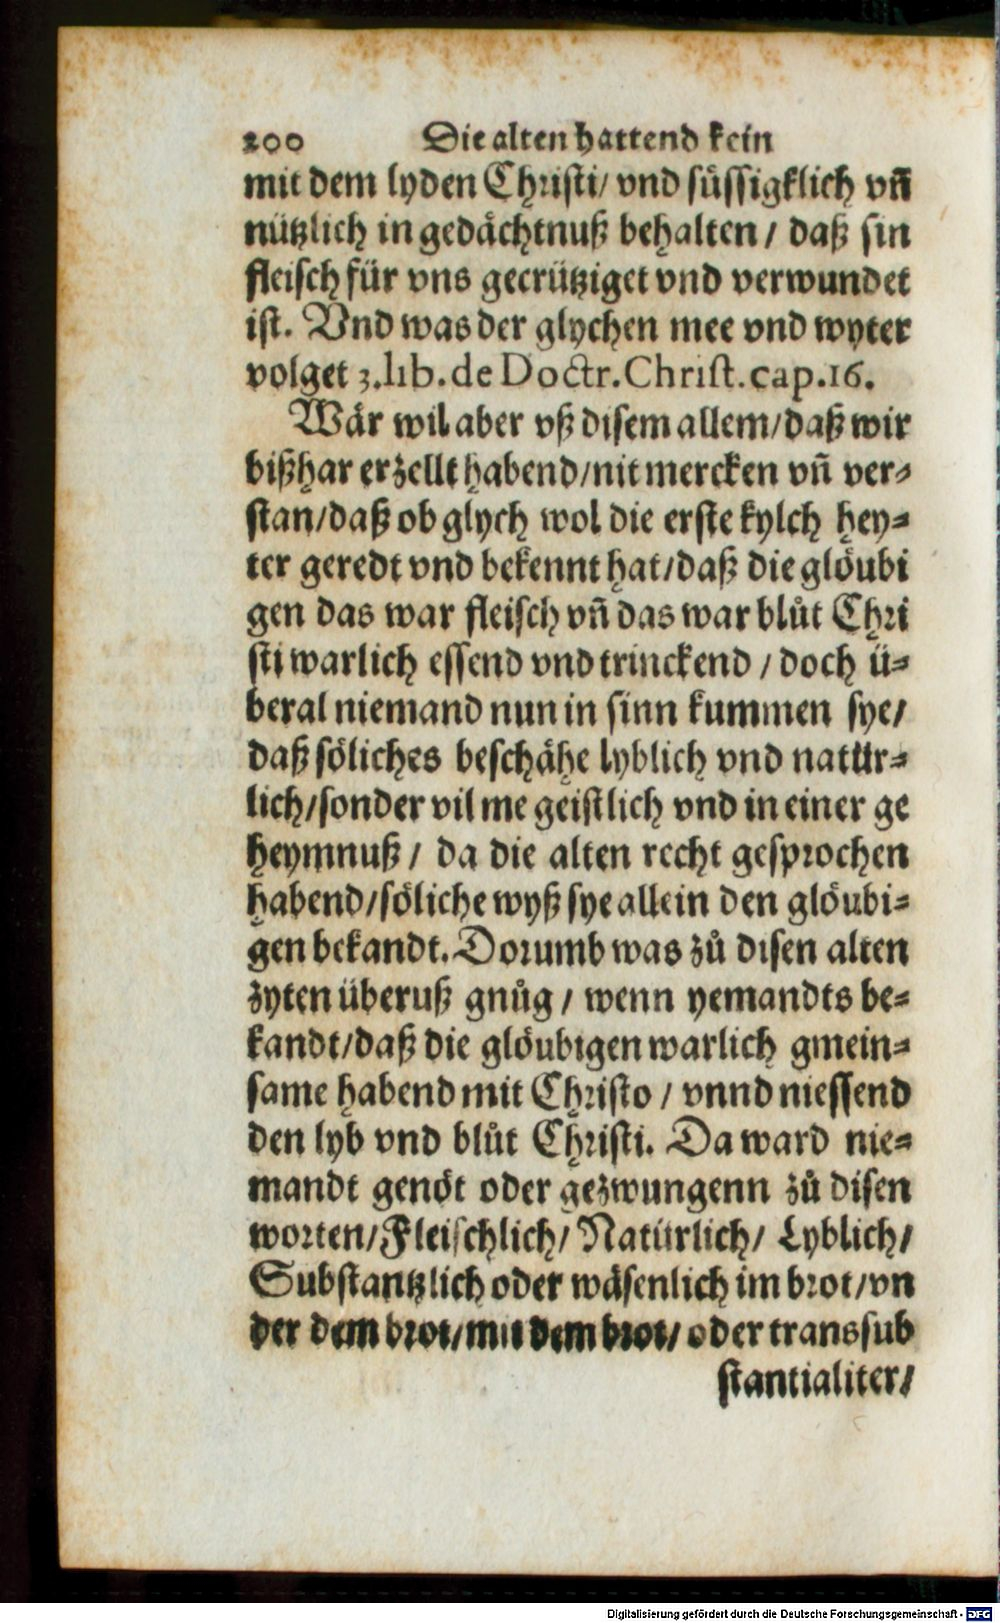 200 Die alten hattend kein
mit dem lyden Christi/ vnd süssigklich vñ
nützlich in gedächtnuß behalten / daß sin
fleisch für vns gecrütziget vnd verwundet
ist. Vnd was der glychen mee vnd wyter
volget 3.lib.de Doctr.Christ.cap.16.
Wär wil aber vß disem allem/daß wir
bißhar erzellt habend/nit mercken vñ ver⸗
stan/daß ob glych wol die erste kylch hey⸗
ter geredt vnd bekennt hat/daß die glöubi
gen das war fleisch vñ das war blůt Chri
sti warlich essend vnd trinckend / doch ü⸗
beral niemand nun in sinn kummen sye/
daß söliches beschähe lyblich vnd natür⸗
lich/sonder vil me geistlich vnd in einer ge
heymnuß / da die alten recht gesprochen
habend/söliche wyß sye allein den glöubi⸗
gen bekandt. Dorumb was zů disen alten
zyten überuß gnůg / wenn yemandts be⸗
kandt/daß die glöubigen warlich gmein⸗
same habend mit Christo / vnnd niessend
den lyb vnd blůt Christi. Da ward nie⸗
mandt genöt oder gezwungenn zů disen
worten/Fleischlich/ Natürlich/ Lyblich/
Substantzlich oder wäsenlich im brot/vn
der dem brot/mit dem brot/ oder transsub
stantialiter/
Digitalisierung gefördert durch die Deutsche Forschungsgemeinschaft - DFG